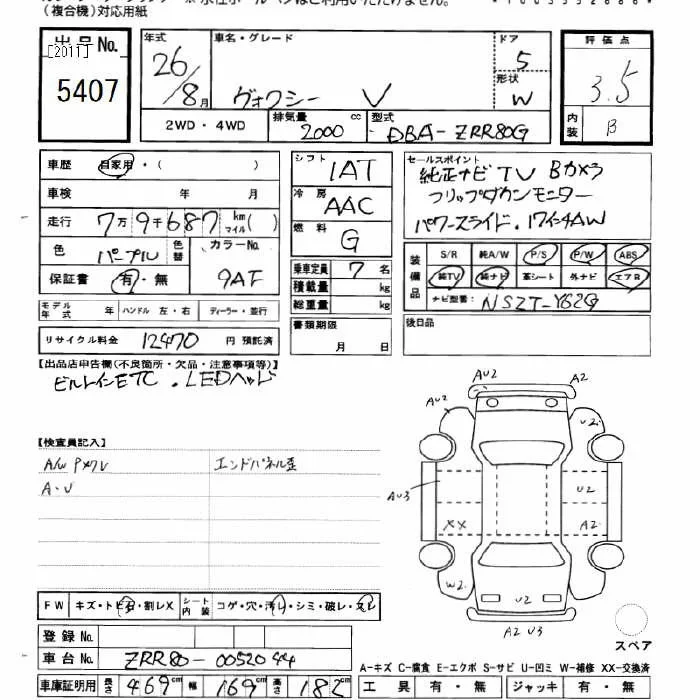 (複合機)対応用紙
出品No.
[2011]
5407
年式 26/8月
車名・グレード ヴォクシー V
ドア 5
形状 W
評価点 3.5
内装 B
2WD・4WD
排気量 2000 cc
型式 DBA-ZRR80G
車歴 自家用・( )
車検 年 月
走行 7万9千687 km マイル( )
色 パープル 色替 カラーNo. 9AF
保証書 有・無
シフト 1AT
冷房 AAC
燃料 G
乗車定員 7 名
積載量 kg
総重量 kg
書類期限 月 日
セールスポイント
純正ナビ TV Bカメラ
フリップダウンモニター
パワースライド.17インチAW
装備品 S/R 純A/W P/S P/W ABS
純TV 純ナビ 革シート 外ナビ エアB
ナビ型番: NSZT-Y62G
後日品
モデル年式 年 ハンドル 左・右 ディーラー・並行
リサイクル料金 12470 円 預託済
【出品店申告欄(不良箇所・欠品・注意事項等)】
ビルトインETC .LEDヘッド
【検査員記入】
A/W
A・U
エンドパネル歪
AU2 A2
AU2 U2
AU3 U2
XX A2
W2 U2
A2 U3
スペア
FW キズ・トビ石・割レX シート内装 コゲ・穴・汚レ・シミ・破レ・スレ
登録No.
車台No. ZRR80-0052044
車庫証明用 長さ 469cm 幅 169cm 高さ 182cm
A-キズ C-腐食 E-エクボ S-サビ U-凹ミ W-補修 XX-交換済
工具 有・無 ジャッキ 有・無